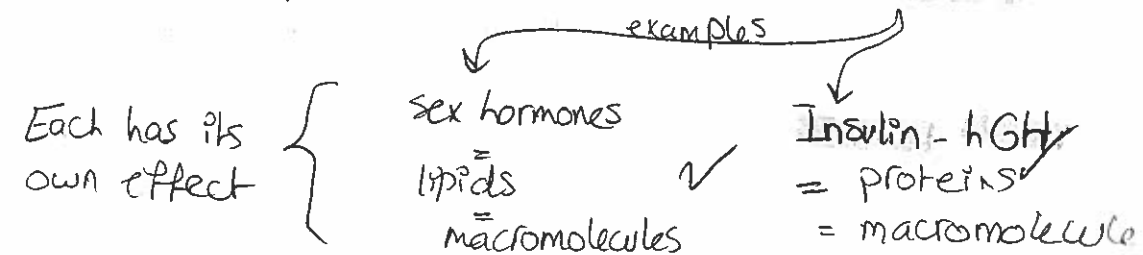 examples
Each has its
own effect
sex hormones
=
lipids
=
macromolecules
Insulin - hGH
= proteins
= macromolecule